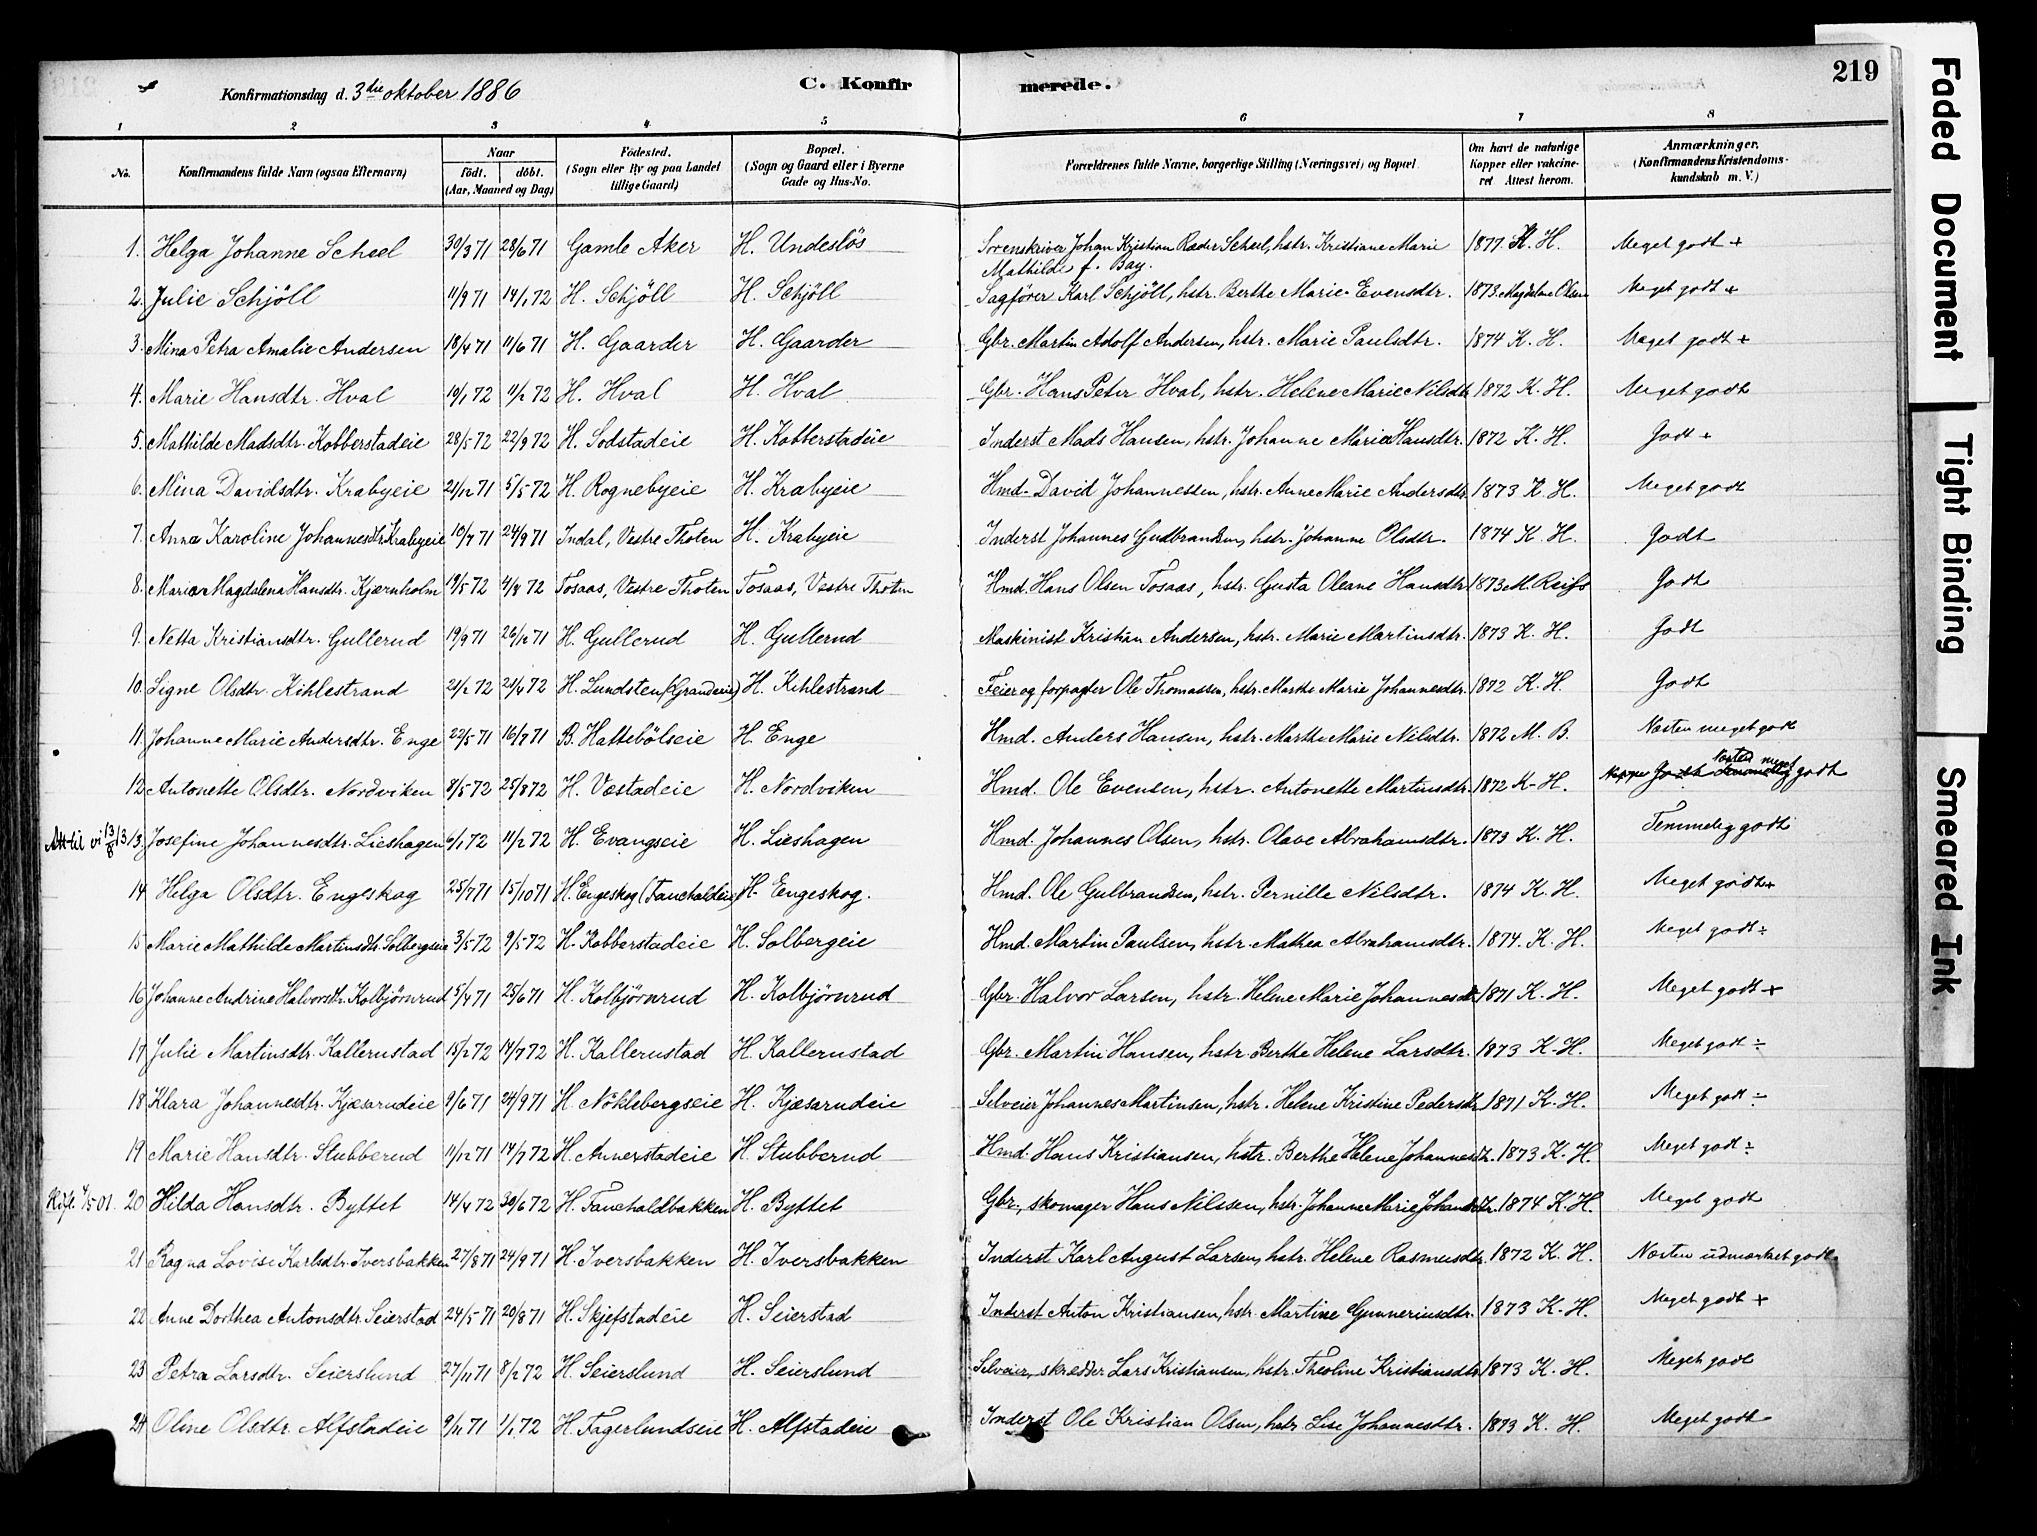 Konfirmationsdag d. 3die oktober 1886 C. Konfirmerede. 219
1 2 3 4 5 6 7 8
No. Konfirmandens fulde Navn (ogsaa Efternavn) Naar født. døbt. (Aar, Maaned og Dag) Fødested. (Sogn eller By og paa Landet tillige Gaard) Bopæl. (Sogn og Gaard eller i Byerne Gade og Hus-No. Forældrenes fulde Navne, borgerlige Stilling (Næringsvei) og Bopæl. Om havt de naturlige Kopper eller vakcineret Attest herom. Anmærkninger. (Konfirmandens Kristendomskundskab m. V.)
1. Helga Johanne Scheel 30/3 71 28/6 71 Gamle Aker H. Undesløs Sorenskriver Johan Kristian Ræder Scheel, hstr. Kristiane Marie Mathilde f. Bay. 1877 K. H. Meget godt +
2. Julie Schjöll 11/9 71 14/1 72 H. Schjöll H. Schjöll Sagfører Karl Schjöll, hstr. Berthe Marie Evensdtr. 1873 Magdalene Olsen Meget godt +
3. Mina Petra Amalie Andersen 18/4 71 11/6 71 H. Gaarder H. Gaarder Gbr. Martin Adolf Andersen, hstr. Marie Paulsdtr. 1874 K. H. Meget godt +
4. Marie Hansdtr. Hval 19/1 72 11/2 72 H. Hval H. Hval Gbr. Hans Peter Hval, hstr. Helene Marie Nilsdtr 1872 K. H. Meget godt
5. Mathilde Madsdtr. Kobberstadeie 28/5 72 22/9 72 H. Sodstadeie H. Kobberstadeie Inderst Mads Hansen, hstr. Johanne Marie Hansdtr. 1872 K. H. Godt +
6. Mina Davidsdtr. Krabyeie 21/12 71 5/5 72 H. Rognebyeie H. Krabyeie Hmd. David Johannessen, hstr. Anne Marie Andersdtr. 1873 K. H. Meget godt
7. Anna Karoline Johannesdtr. Krabyeie 10/7 71 24/9 71 Indal, Vestre Thoten H. Krabyeie Inderst Johannes Gudbrandsen, hstr. Johanne Olsdtr. 1874 K. H. Godt
8. Maria Magdalena Hansdtr. Kjærnholm 19/5 72 4/8 72 Tosaas, Vestre Thoten Tosaas, Vestre Thoten Hmd. Hans Olsen Tosaas, hstr. Gusta Oleane Hansdtr. 1873 M. Godt
9. Netta Kristiansdtr. Gullerud 19/9 71 26/12 71 H. Gullerud H. Gullerud Maskinist Kristian Andersen, hstr. Marie Martinsdtr. 1873 K. H. Godt
10. Signe Olsdtr. Kihlestrand 21/2 72 21/4 72 H. Lundsten (Grandeie) H. Kihlestrand Feier og forpagter Ole Thomassen, hstr. Marthe Marie Johannesdtr. 1872 K. H. Godt
11. Johanne Marie Andersdtr. Enge 22/5 71 16/7 71 B. Hattebölseie H. Enge Hmd. Anders Hansen, hstr. Marthe Marie Nilsdtr. 1872 M. B. Næsten meget godt
12. Antonette Olsdtr. Nordviken 8/5 72 25/8 72 H. Vestadeie H. Nordviken Hmd. Ole Evensen, hstr. Antonette Martinsdtr. 1872 K. H. Neppe Godt Næsten meget godt
Att. til vi 13/8 13 13. Josefine Johannesdtr. Lieshagen 6/1 72 11/2 72 H. Evangseie H. Lieshagen Hmd. Johannes Olsen, hstr. Olave Abrahamsdtr. 1873 K. H. Temmelig godt
14 Helga Olsdtr. Engeskog 25/7 71 15/10 71 H. Engeskog (Fauchaldeie) H. Engeskog. Hmd. Ole Gulbrandsen, hstr. Pernille Nilsdtr. 1874 K. H. Meget godt +
15 Marie Mathilde Martinsdtr. Solbergeie 3/5 72 9/5 72 H. Kobberstadeie H. Solbergeie Hmd. Martin Paulsen, hstr. Mathea Abrahamsdtr. 1874. K. H. Meget godt ÷
16 Johanne Andrine Halvorsdtr. Kolbjörnrud 5/4 71 25/6 71 H. Kolbjörnrud H. Kolbjörnrud Gbr. Halvor Larsen, hstr. Helene Marie Johannesdtr 1871 K. H. Meget godt +
17 Julie Martinsdtr. Kallerustad 15/2 72 14/7 72 H. Kallerustad H. Kallerustad Gbr. Martin Hansen, hstr. Berthe Helene Larsdtr. 1873 K. H. Meget godt ÷
18 Klara Johannesdtr. Kjæsarudeie 9/6 71 24/9 71 H. Nöklebergseie H. Kjæsarudeie Selveier Johannes Martinsen, hstr. Helene Kristine Pedersdtr 1871 K. H. Meget godt ÷
19 Marie Hansdtr. Stubberud 11/12 71 14/7 72 H. Annexstadeie H. Stubberud Hmd. Hans Kristiansen, hstr. Berthe Helene Johannesdtr. 1873 K. H. Meget godt ÷
1/5 01. 20 Hilda Hansdtr. Byttet 14/4 72 30/6 72 H. Fauchaldbakken H. Byttet Gbr., skomager Hans Nilssen, hstr. Johanne Marie Johansdtr. 1874 K. H. Meget godt
21 Ragna Lovise Karlsdtr. Iversbakken 27/8 71 24/9 71 H. Iversbakken H. Iversbakken Inderst Karl August Larsen, hstr. Helene Rasmusdtr. 1872 K. H. Næsten udmærket godt
22 Anne Dorthea Antonsdtr. Seierstad 24/5 71 20/8 71 H. Skjefstadeie H. Seierstad Inderst Anton Kristiansen, hstr. Martine Gunneriusdtr. 1873 K. H. Meget godt +
23 Petra Larsdtr. Seierslund 27/11 71 8/2 72 H. Seierslund H. Seierslund Selveier, skrædder Lars Kristiansen, hstr. Theoline Kristiansdtr 1873 K. H. Meget godt
24 Oline Olsdtr. Alfstadeie 9/11 71 1/1 72 H. Fagerlundseie H. Alfstadeie Inderst Ole Kristian Olsen, hstr. Lise Johannesdtr. 1873 K. H. Meget godt
Faded Document
Tight Binding
Smeared Ink